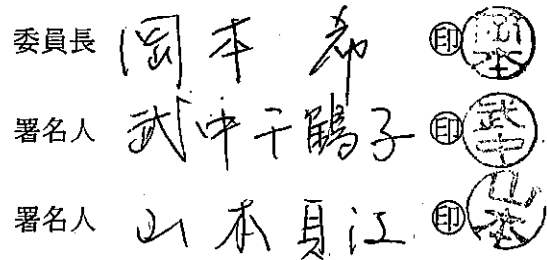 委員長 岡本 希 ㊞ 岡本
署名人 武中千鶴子 ㊞ 武中
署名人 山本貝江 ㊞ 山本